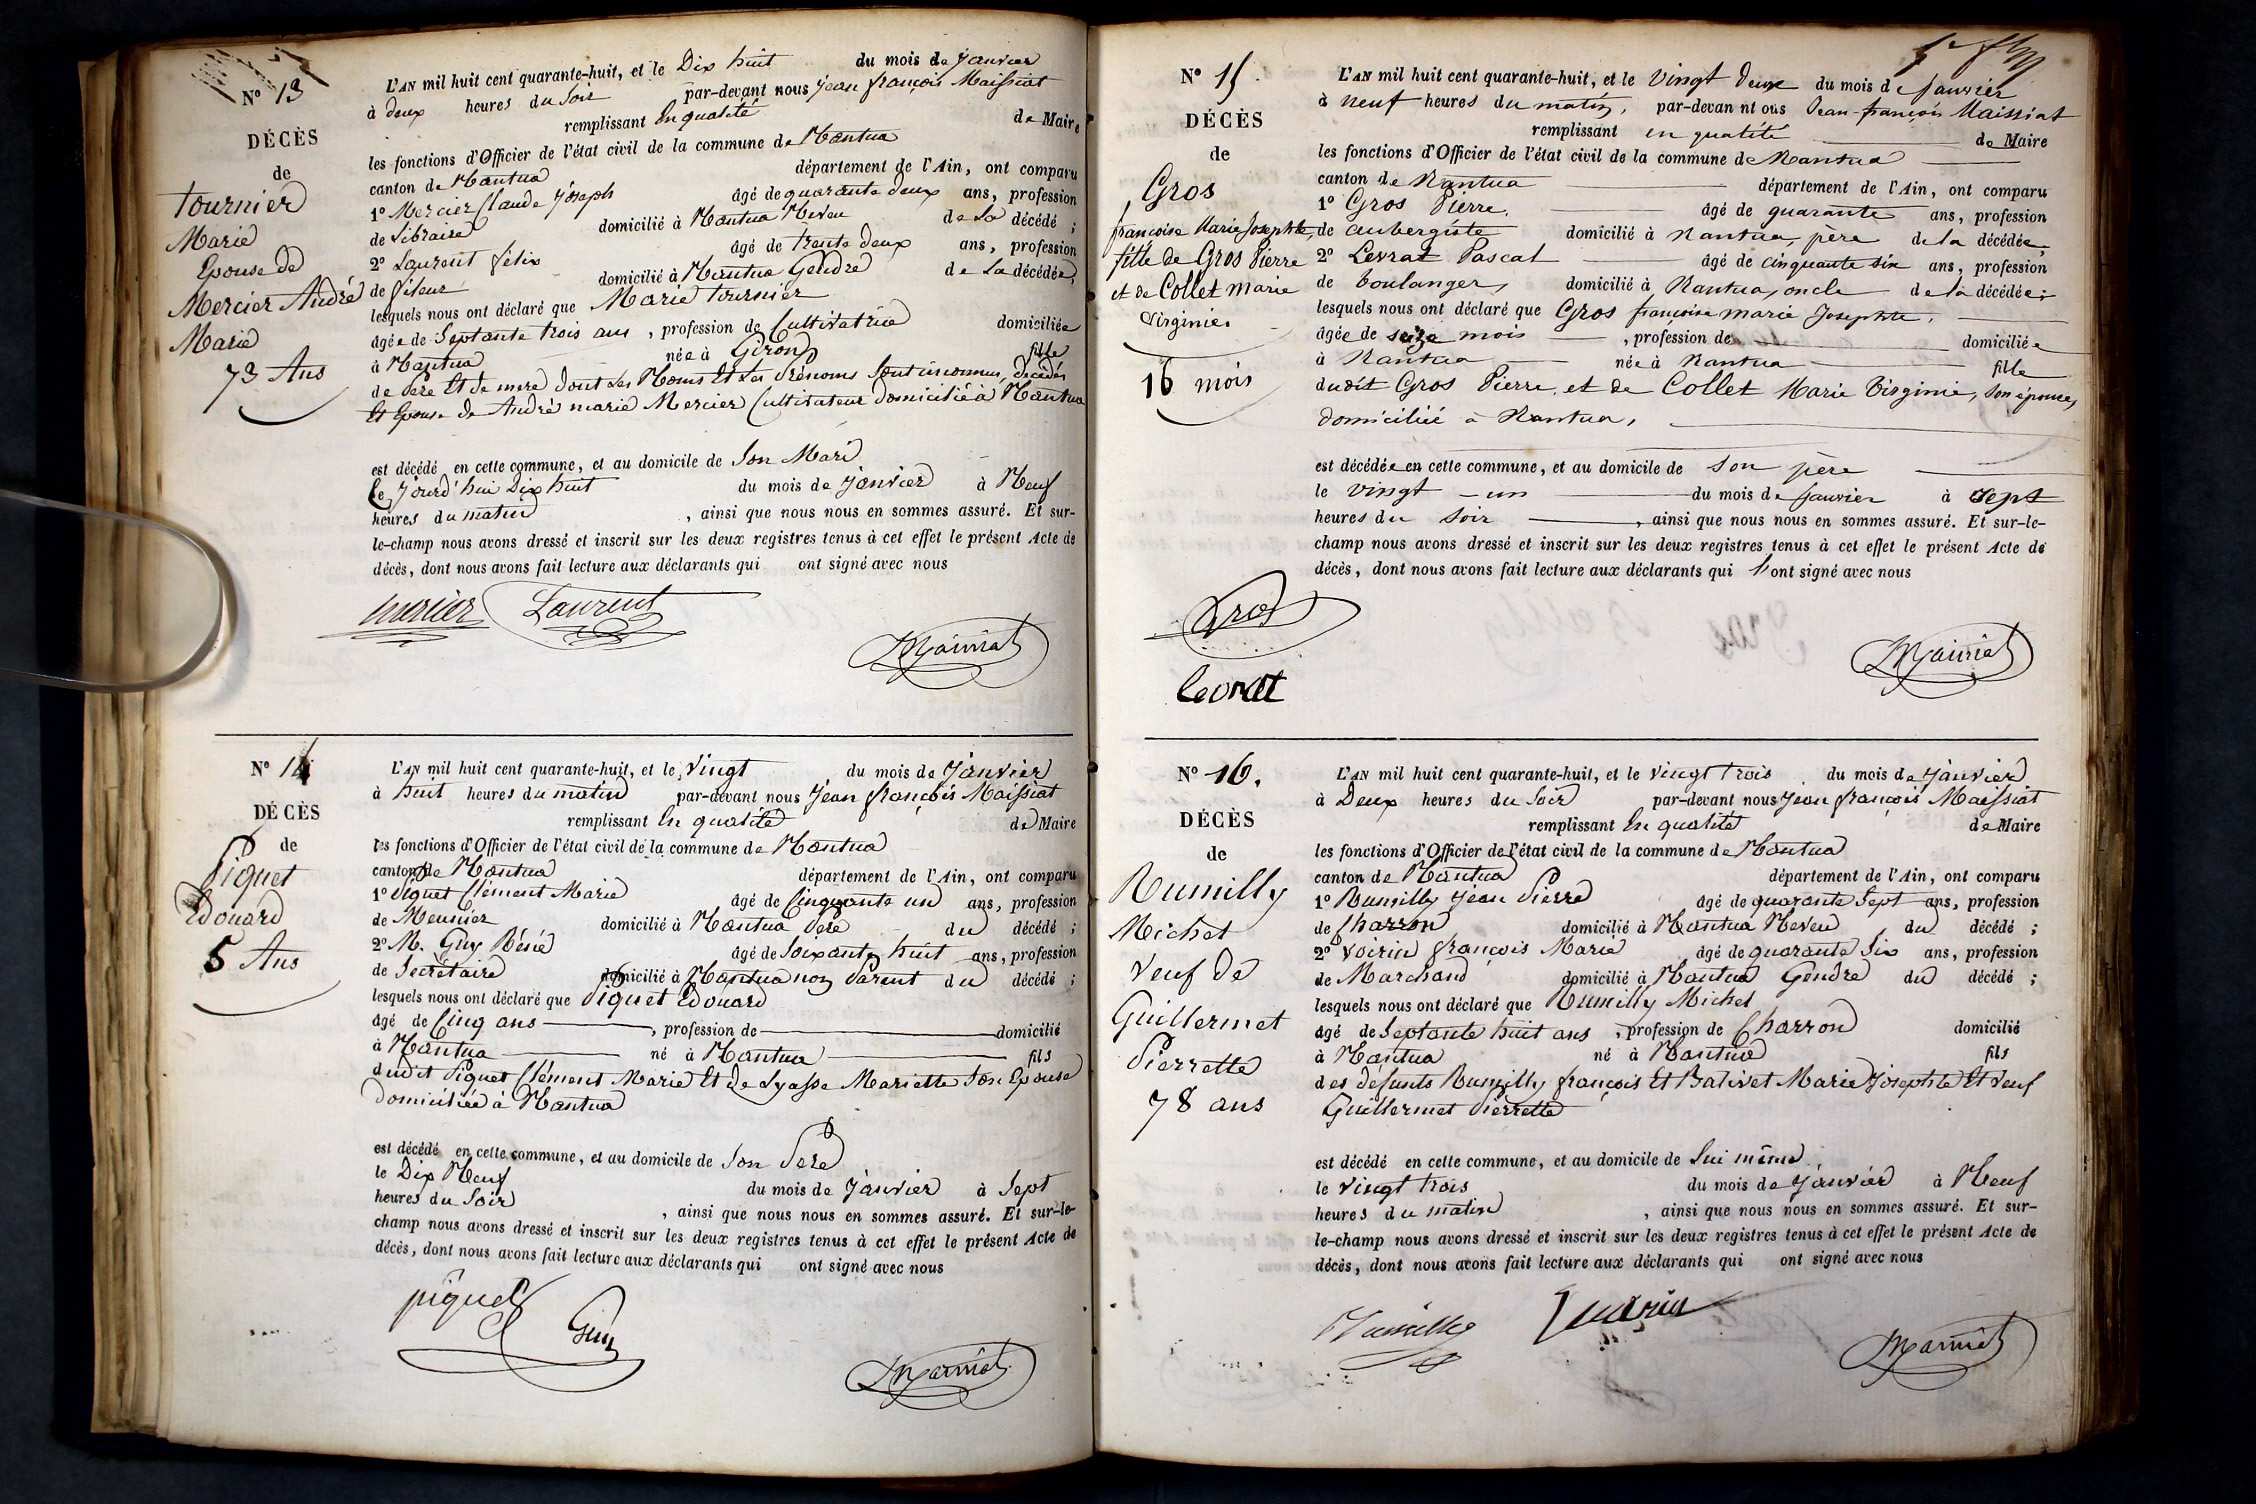 N° 13
DÉCÈS
de
Tournier
Marie
Epouse de
Mercier André
Marie
73 Ans
L'AN mil huit cent quarante-huit, et le Dix huit du mois de Janvier
à deux heures du Soir par-devant nous Jean françois Maissiat
remplissant En qualité de Maire
les fonctions d'Officier de l'état civil de la commune de Nantua
canton de Nantua département de l'Ain, ont comparu
1° Mercier Claude Joseph âgé de quarante deux ans, profession
de Libraire domicilié à Nantua Neveu de La décédé ;
2° Laurent félix âgé de trente deux ans, profession
de fileur domicilié à Nantua Gendre de La décédée ;
lesquels nous ont déclaré que Marie Tournier
âgée de Septante trois ans, profession de Cultivatrice domiciliée
à Nantua née à Giron fille
de Père Et de mere dont Les Noms Et Les Prénoms Sont inconnus, décédés
Et Epouse de André marie Mercier Cultivateur domicilié à Nantua
est décédé en cette commune, et au domicile de Son Mari
le Jourd'hui Dix huit du mois de Janvier à Neuf
heures du matin, ainsi que nous nous en sommes assuré. Et sur-
le-champ nous avons dressé et inscrit sur les deux registres tenus à cet effet le présent Acte de
décès, dont nous avons fait lecture aux déclarants qui ont signé avec nous
mercier Laurent
Maissiat
N° 14
DÉCÈS
de
Piquet
Edouard
5 Ans
L'AN mil huit cent quarante-huit, et le Vingt du mois de Janvier
à huit heures du matin par-devant nous Jean françois Maissiat
remplissant En qualité de Maire
les fonctions d'Officier de l'état civil de la commune de Nantua
canton de Nantua département de l'Ain, ont comparu
1° Piquet Clément Marie âgé de Cinquante un ans, profession
de Meunier domicilié à Nantua Père du décédé ;
2° M. Guy Réné âgé de Soixante huit ans, profession
de Secrétaire domicilié à Nantua non Parent du décédé ;
lesquels nous ont déclaré que Piquet Edouard
âgé de Cinq ans, profession de domicilié
à Nantua né à Nantua fils
dudit Piquet Clément Marie Et de Lyasse Mariette Son Epouse
domiciliée à Nantua
est décédé en cette commune, et au domicile de Son Père
le Dix Neuf du mois de Janvier à Sept
heures du Soir, ainsi que nous nous en sommes assuré. Et sur-le-
champ nous avons dressé et inscrit sur les deux registres tenus à cet effet le présent Acte de
décès, dont nous avons fait lecture aux déclarants qui ont signé avec nous
piquet Guy
Maissiat
N° 15
DÉCÈS
de
Gros
françoise Marie Josephte,
fille de Gros Pierre
et de Collet Marie
Virginie.
16 mois
L'AN mil huit cent quarante-huit, et le Vingt Deux du mois de Janvier
à neuf heures du matin, par-devant nous Jean-françois Maissiat
remplissant en qualité de Maire
les fonctions d'Officier de l'état civil de la commune de Nantua
canton de Nantua département de l'Ain, ont comparu
1° Gros Pierre, âgé de quarante ans, profession
de aubergiste domicilié à Nantua, père de la décédée ;
2° Levrat Pascal âgé de cinquante six ans, profession
de boulanger, domicilié à Nantua, oncle de la décédée ;
lesquels nous ont déclaré que Gros françoise Marie Josephte,
âgée de seize mois, profession de domiciliée
à Nantua née à Nantua fille
dudit Gros Pierre, et de Collet Marie Virginie, son épouse,
domiciliée à Nantua,
est décédée en cette commune, et au domicile de son père
le vingt-un du mois de Janvier à sept
heures du soir, ainsi que nous nous en sommes assuré. Et sur-le-
champ nous avons dressé et inscrit sur les deux registres tenus à cet effet le présent Acte de
décès, dont nous avons fait lecture aux déclarants qui l'ont signé avec nous
Gros
Maissiat
Levrat
N° 16.
DÉCÈS
de
Rumilly
Michel
Veuf de
Guillermet
Pierrette
78 ans
L'AN mil huit cent quarante-huit, et le Vingt trois du mois de Janvier
à Deux heures du Soir par-devant nous Jean françois Maissiat
remplissant En qualité de Maire
les fonctions d'Officier de l'état civil de la commune de Nantua
canton de Nantua département de l'Ain, ont comparu
1° Rumilly Jean Pierre âgé de quarante Sept ans, profession
de Charron domicilié à Nantua Neveu du décédé ;
2° Voirin françois Marie âgé de quarante Six ans, profession
de Marchand domicilié à Nantua Gendre du décédé ;
lesquels nous ont déclaré que Rumilly Michel
âgé de Septante huit ans, profession de Charron domicilié
à Nantua né à Nantua fils
des défunts Rumilly françois Et Balivet Marie Josephte Et Veuf
Guillermet Pierrette
est décédé en cette commune, et au domicile de Lui même
le Vingt trois du mois de Janvier à Neuf
heures du matin, ainsi que nous nous en sommes assuré. Et sur-
le-champ nous avons dressé et inscrit sur les deux registres tenus à cet effet le présent Acte de
décès, dont nous avons fait lecture aux déclarants qui ont signé avec nous
Rumilly
Maissiat